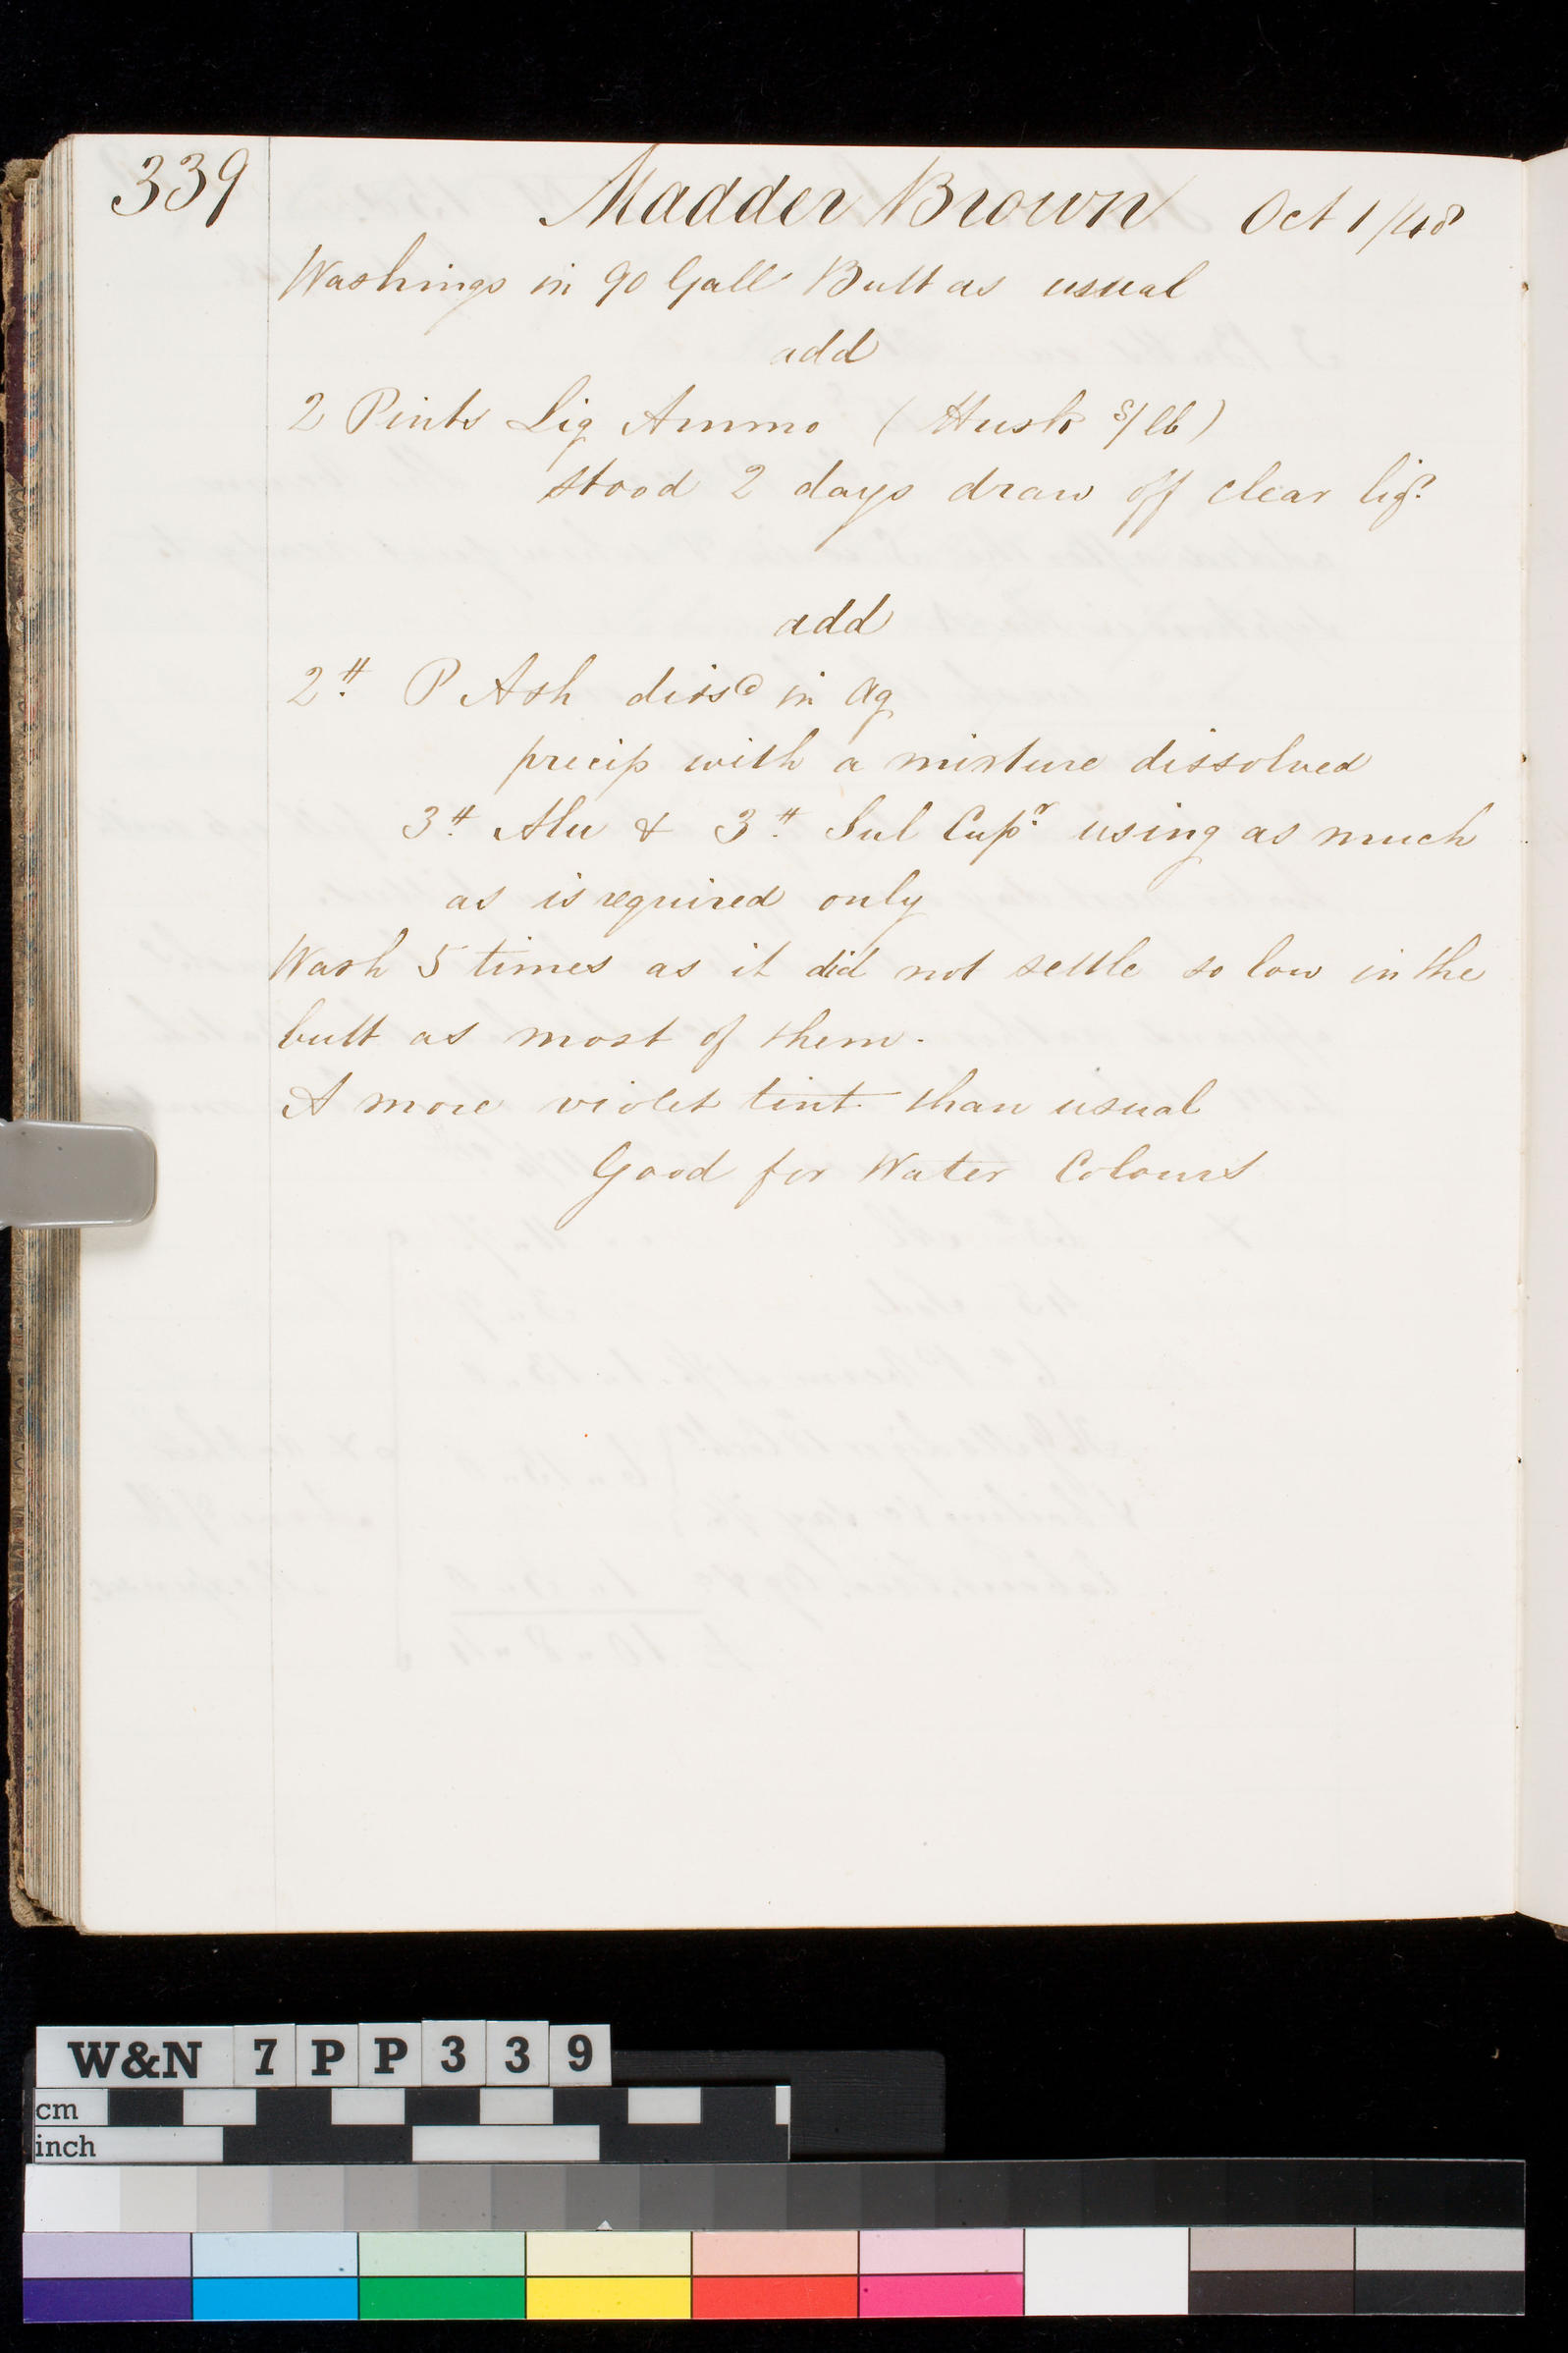 339
Madder Brown Oct 1/48
Washings in 90 Gall Butt as usual
add
2 Pints Liq Ammo (Husk s/lb)
stood 2 days draw off clear liqr
add
2# P Ash dissd in aq
precip with a mixture dissolved
3# Alu & 3# Sul Cupr using as much
as is required only
Wash 5 times as it did not settle so low in the
butt as most of them.
A more violet tint than usual
Good for Water Colours
W&N 7PP339
cm
inch